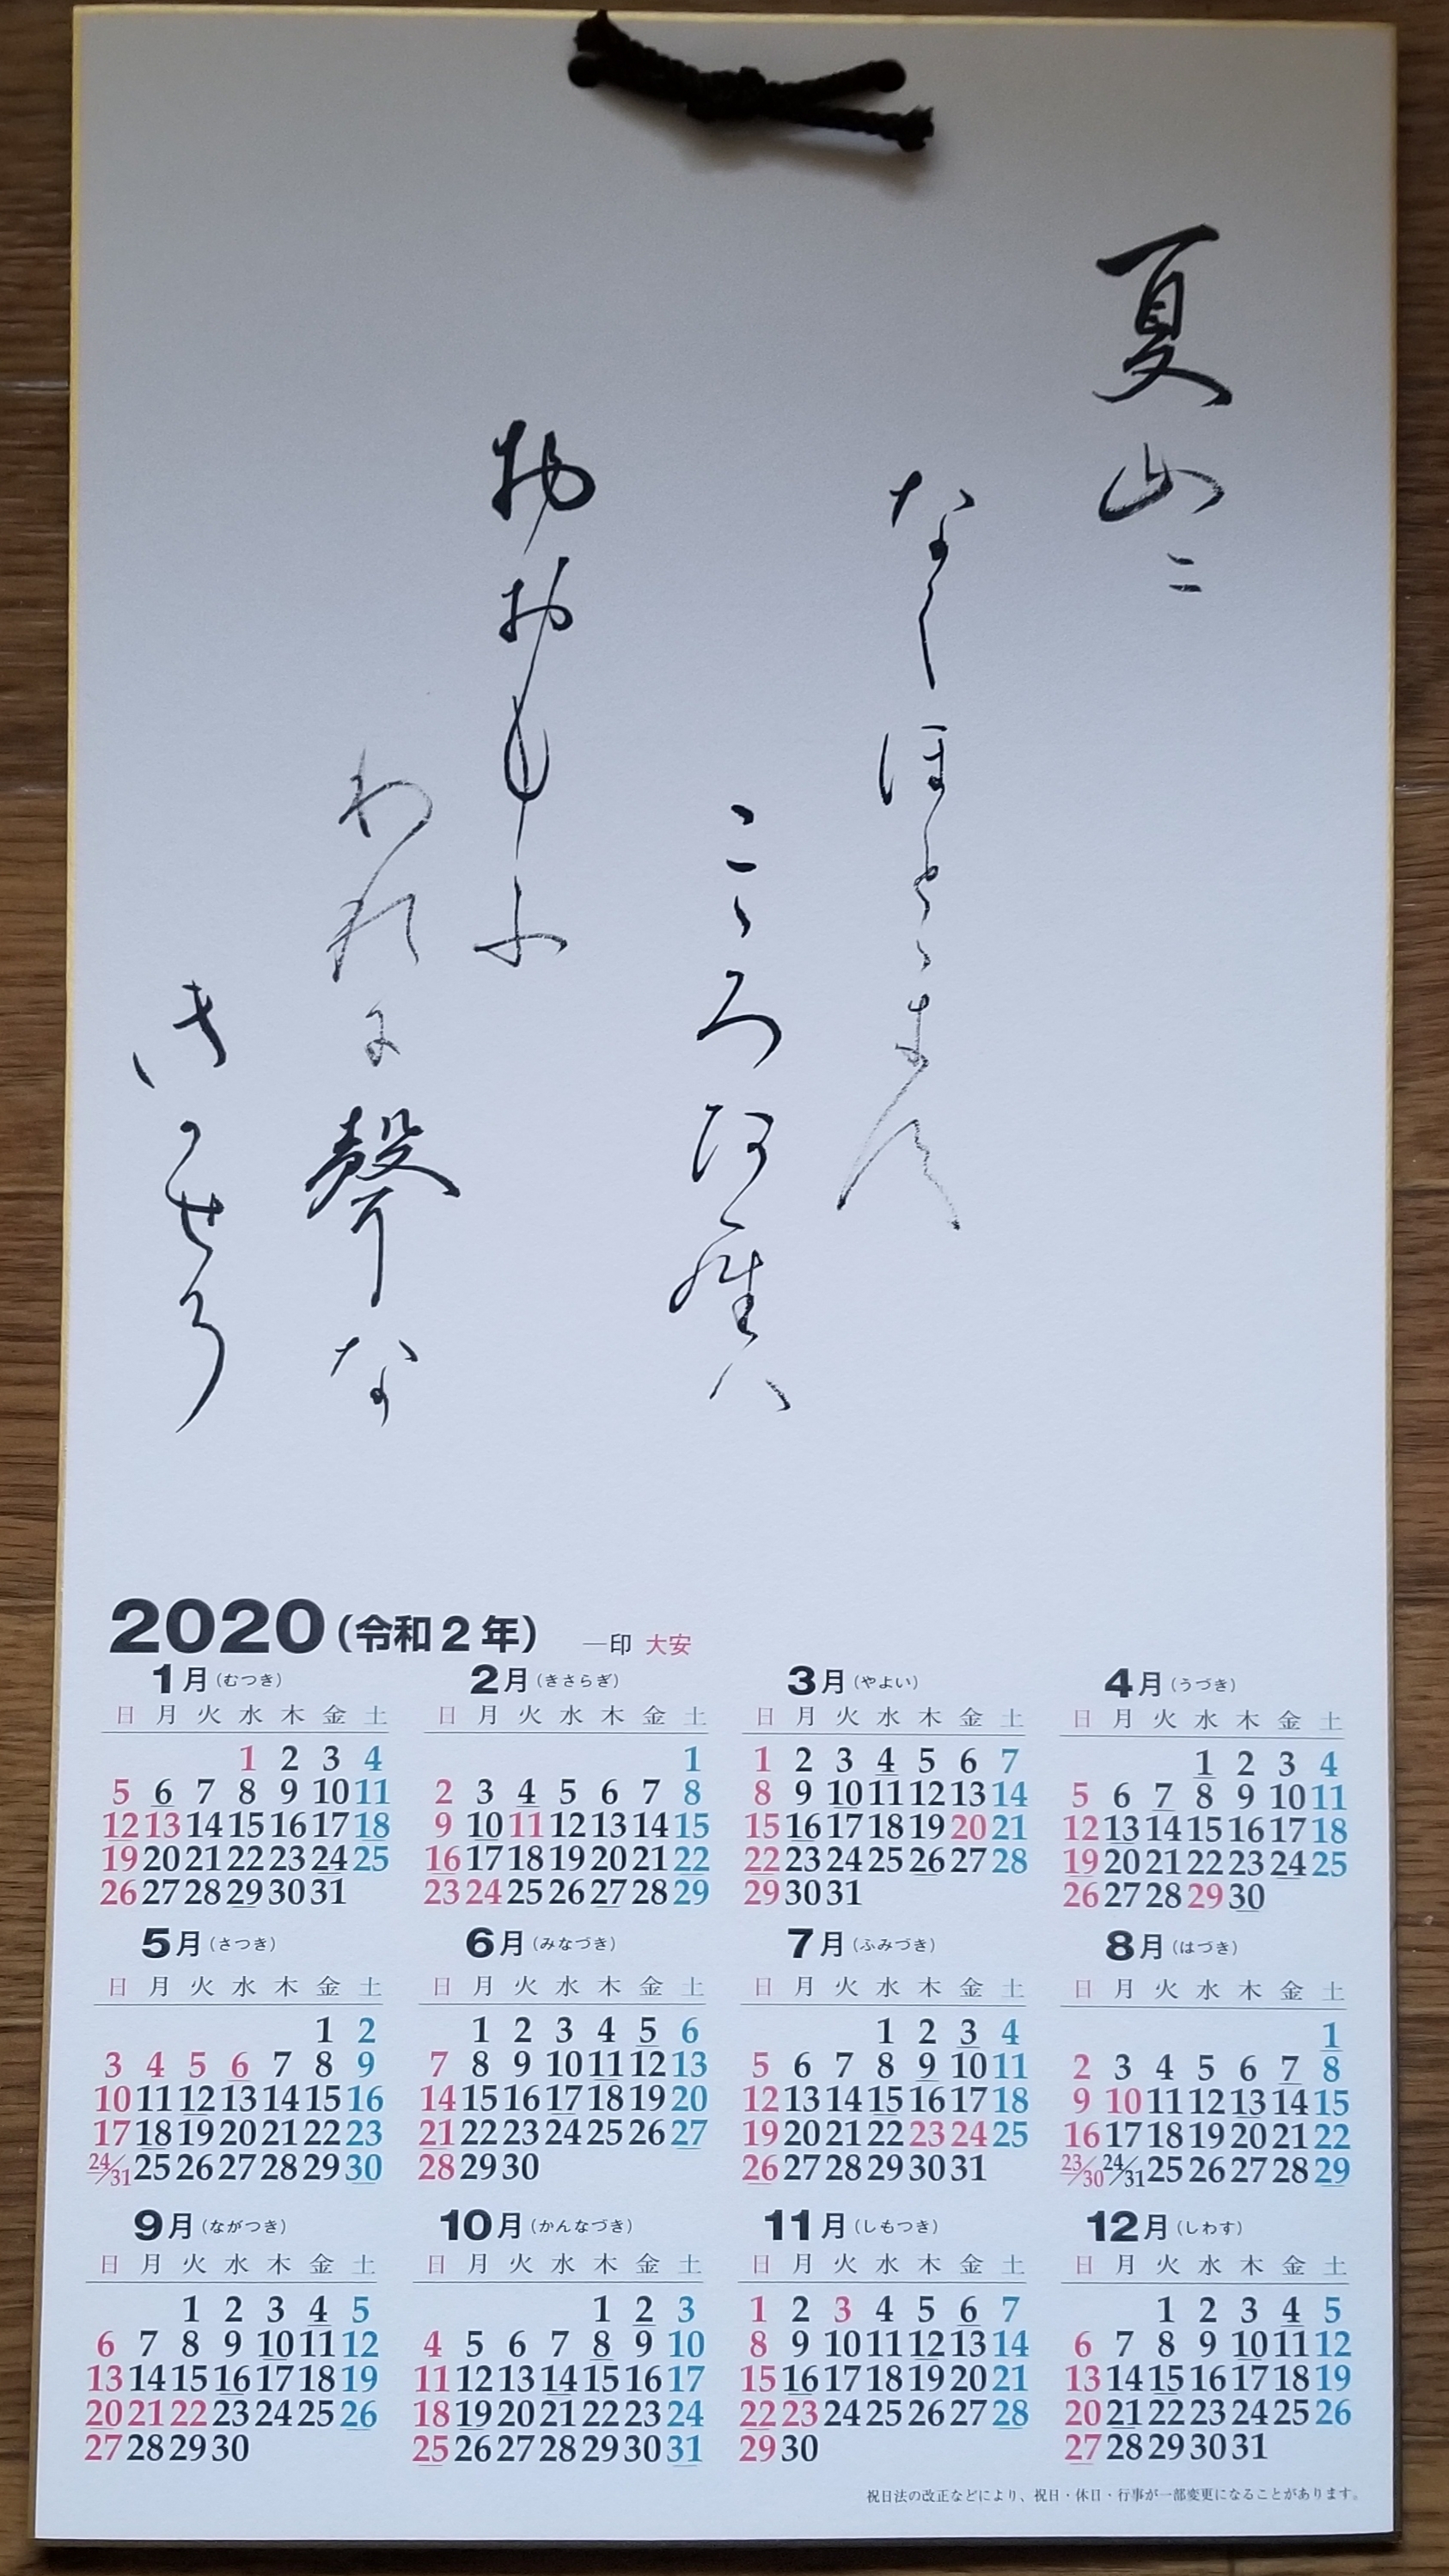 夏山二
なくほとゝきす
こゝろ阿羅八
物おもふ
われに聲な
きかせそ
2020(令和2年) —印 大安
1月(むつき)
日 月 火 水 木 金 土
1 2 3 4
5 6 7 8 9 10 11
12 13 14 15 16 17 18
19 20 21 22 23 24 25
26 27 28 29 30 31
2月(きさらぎ)
日 月 火 水 木 金 土
1
2 3 4 5 6 7 8
9 10 11 12 13 14 15
16 17 18 19 20 21 22
23 24 25 26 27 28 29
3月(やよい)
日 月 火 水 木 金 土
1 2 3 4 5 6 7
8 9 10 11 12 13 14
15 16 17 18 19 20 21
22 23 24 25 26 27 28
29 30 31
4月(うづき)
日 月 火 水 木 金 土
1 2 3 4
5 6 7 8 9 10 11
12 13 14 15 16 17 18
19 20 21 22 23 24 25
26 27 28 29 30
5月(さつき)
日 月 火 水 木 金 土
1 2
3 4 5 6 7 8 9
10 11 12 13 14 15 16
17 18 19 20 21 22 23
24/31 25 26 27 28 29 30
6月(みなづき)
日 月 火 水 木 金 土
1 2 3 4 5 6
7 8 9 10 11 12 13
14 15 16 17 18 19 20
21 22 23 24 25 26 27
28 29 30
7月(ふみづき)
日 月 火 水 木 金 土
1 2 3 4
5 6 7 8 9 10 11
12 13 14 15 16 17 18
19 20 21 22 23 24 25
26 27 28 29 30 31
8月(はづき)
日 月 火 水 木 金 土
1
2 3 4 5 6 7 8
9 10 11 12 13 14 15
16 17 18 19 20 21 22
23/30 24/31 25 26 27 28 29
9月(ながつき)
日 月 火 水 木 金 土
1 2 3 4 5
6 7 8 9 10 11 12
13 14 15 16 17 18 19
20 21 22 23 24 25 26
27 28 29 30
10月(かんなづき)
日 月 火 水 木 金 土
1 2 3
4 5 6 7 8 9 10
11 12 13 14 15 16 17
18 19 20 21 22 23 24
25 26 27 28 29 30 31
11月(しもつき)
日 月 火 水 木 金 土
1 2 3 4 5 6 7
8 9 10 11 12 13 14
15 16 17 18 19 20 21
22 23 24 25 26 27 28
29 30
12月(しわす)
日 月 火 水 木 金 土
1 2 3 4 5
6 7 8 9 10 11 12
13 14 15 16 17 18 19
20 21 22 23 24 25 26
27 28 29 30 31
祝日法の改正などにより、祝日・休日・行事が一部変更になることがあります。